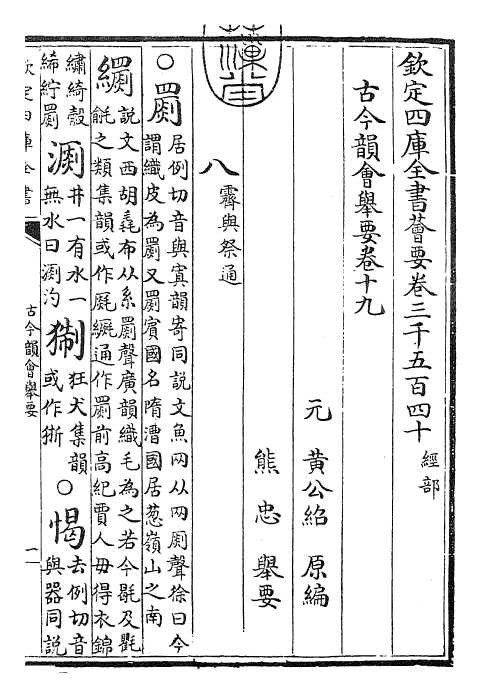 欽定四庫全書薈要卷三千五百四十 經部
古今韻會舉要卷十九
元 黄公紹 原編
熊 忠 舉要
八 霽與祭通
○罽 居例切音與寘韻寄同說文魚网从网𠛱聲徐曰今
謂織皮為罽又罽賓國名隋漕國居葱嶺山之南
繝 說文西胡毳布从糸罽聲廣韻織毛為之若今毼及氍
毹之類集韻或作𣮉𦇧通作罽前高紀賈人毋得衣錦
繡綺縠
絺紵罽 瀱 井一有水一
無水曰瀱汋 猘 狂犬集韻
或作狾 ○愒 去例切音
與器同說
欽定四庫全書
古今韻會舉要
一